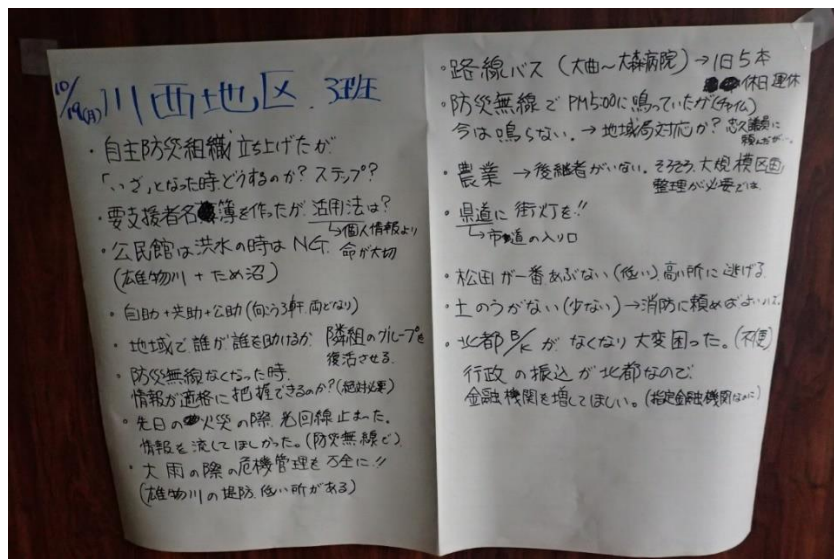 10/19(月) 川西地区 3班
・自主防災組織立ち上げたが
「いざ」となった時どうするのか? ステップ?
・要支援者名簿を作ったが活用法は?
→個人情報より
命が大切
・公民館は洪水の時はNG.
(雄物川+ため沼)
・自助+共助+公助(向こう3軒両どなり)
・地域で誰が誰を助けるか 隣組のグループを
復活させる.
・防災無線なくなった時.
情報が適格に把握できるのか?(絶対必要)
・先日の火災の際、光回線止まった.
情報を流してほしかった。(防災無線で)
・大雨の際の危機管理を万全に!!
(雄物川の堤防.低い所がある)
・路線バス (大曲〜大森病院)→1日5本
休日運休
・防災無線でPM5:00に鳴っていたが(チャイム)
今は鳴らない.→地域局対応か?
頼んだが…。
・農業→後継者がいない。そろそろ、大規模区画
整理が必要では
・県道に街灯を!!
→市道の入り口
・松田が一番あぶない(低い)高い所に逃げる.
・土のうがない(少ない)→消防に頼めばよいハズ.
・北都B/Kがなくなり大変困った。(不便)
行政の振込が北都なので
金融機関を増してほしい。(指定金融機関なのに)